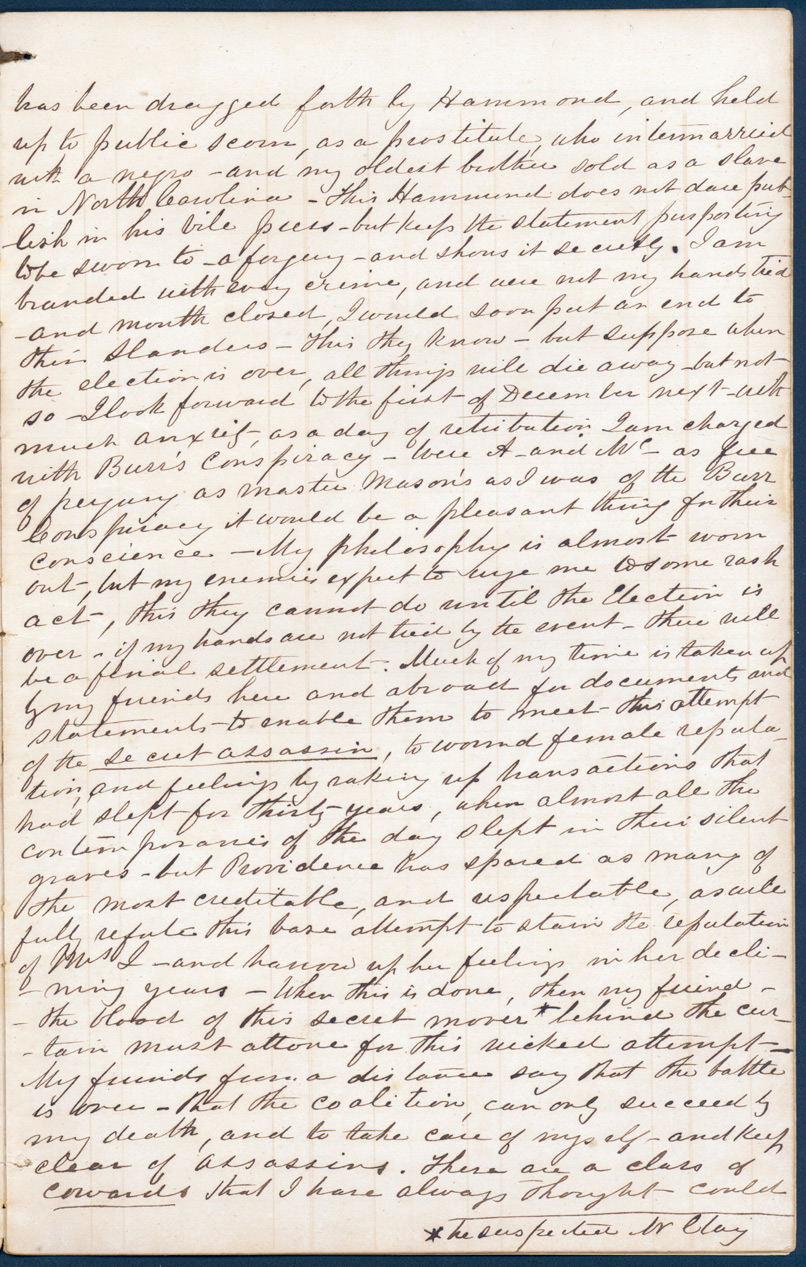 has been dragged forth by Hammond, and held
up to public scorn, as a prostitute, who intermarried
with a negro - and my oldest brother sold as a slave
in North Carolina - This Hammond does not dare pub-
-lish in his vile press - but keeps the statement purporting
to be sworn to - a forgery - and shows it secretly. I am
branded with every crime, and were not my hands tied
- and mouth closed, I would soon put an end to
their slanders - This they know - but suppose when
the election is over, all things will die away - but not
so - I look forward to the first of December next - with
much anxiety, as a day of retribution I am charged
with Burr's Conspiracy - Were A - and Mc - as free
of perjury as master Mason's as I was of the Burr
Conspiracy it would be a pleasant thing for their
conscience - My philosophy is almost worn
out, but my enemies expect to urge me to some rash
act, this they cannot do until the Election is
over - if my hands are not tied by the event - there will
be a final settlement. Much of my time is taken up
by my friends here and abroad for documents and
statements - to enable them to meet this attempt
of the secret assassin, to wound female reputa-
tion, and feelings by raking up transactions that
had slept for thirty years, when almost all the
contemporaries of the day slept in their silent
graves - but Providence has spared as many of
the most creditable, and respectable, as will
fully refute this base attempt to stain the reputation
of Mrs J - and harrow up her feelings in her decli-
- ning years - When this is done, then my friend -
- the blood of this secret mover* behind the cur-
- tain must attone for this wicked attempt -
My friends from a distance say that the battle
is over - that the coalition, can only succeed by
my death, and to take care of myself - and keep
clear of assassins. There are a class of
cowards that I have always thought could
* he suspected Mr Clay